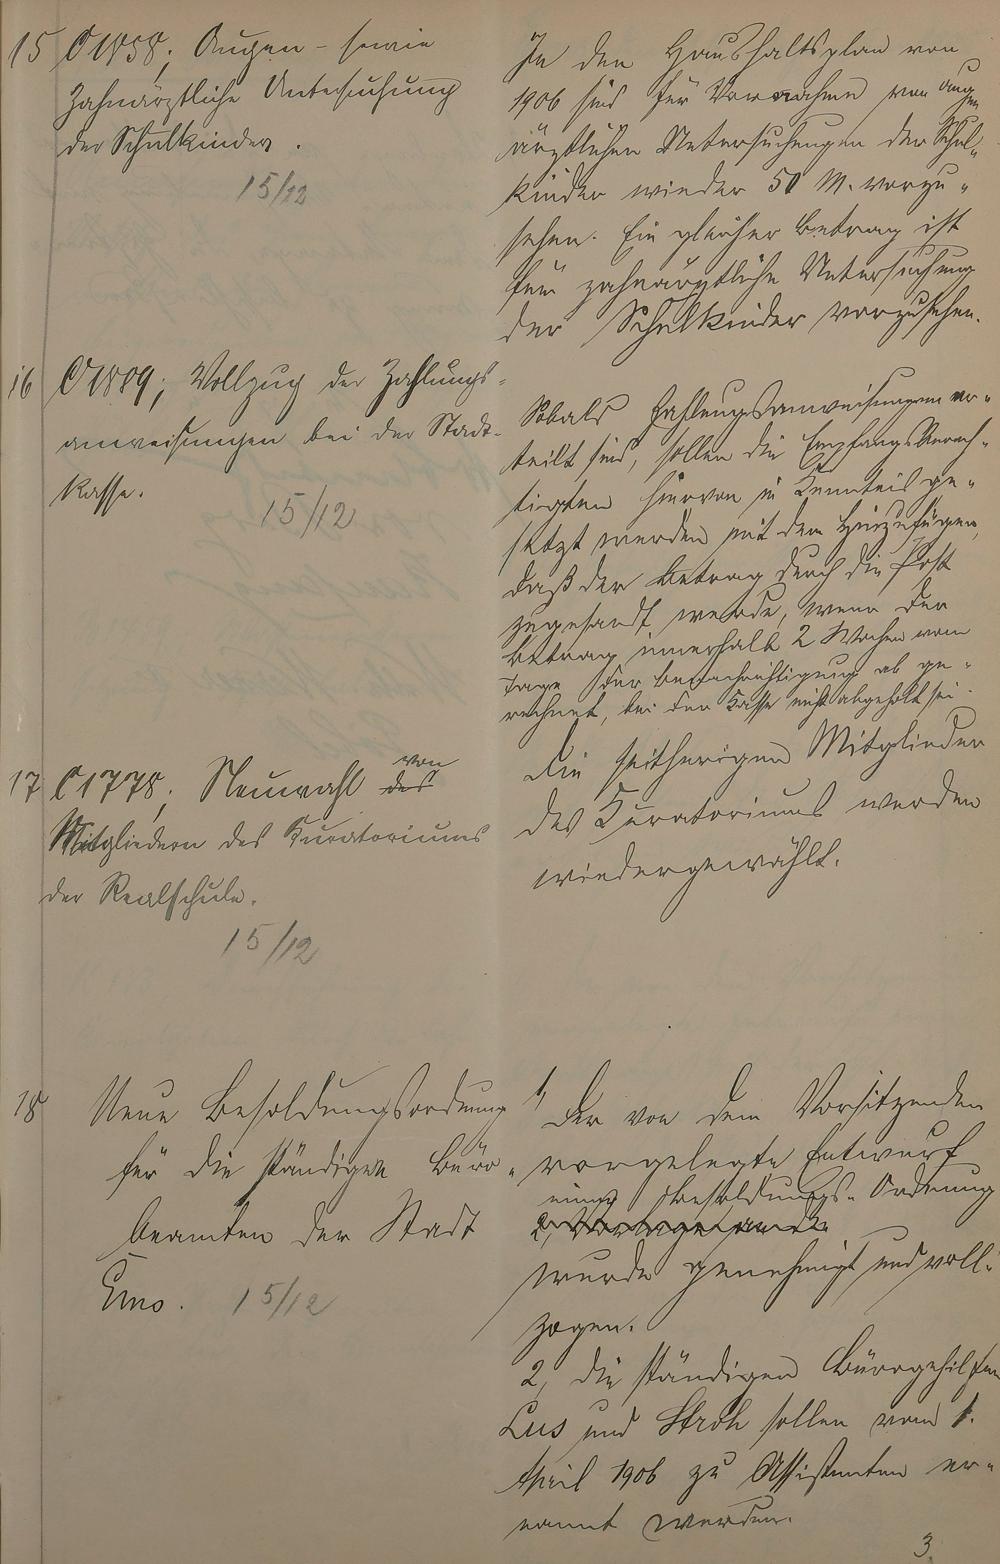 15 C 1858; Augen- sowie
Zahnärztliche Untersuchung
der Schulkinder.
15/12
In den Haushaltsplan von
1906 sind für Vornahme von augen
ärztlichen Untersuchungen der Schul-
kinder wieder 50 M. vorzu-
sehen. Ein gleicher Betrag ist
für zahnärztliche Untersuchung
der Schulkinder vorzusehen.
16 C 1809; Vollzug der Zahlungs-
anweisungen bei der Stadt-
kasse.
15/12
Sobald Zahlungsanweisungen er-
teilt sind, sollen die Empfangsberech-
tigten hiervon in Kenntnis ge-
setzt werden mit dem Hinzufügen,
daß der Betrag durch die Post
zugesandt werde, wenn der
Betrag innerhalb 2 Wochen vom
Tage der Benachrichtigung ab ge-
rechnet, bei der Kasse nicht abgeholt sei.
17 C 1778; Neuwahl des von
Mitgliedern des Kuratoriums
der Realschule.
15/12
Die seitherigen Mitglieder
des Kuratoriums werden
wiedergewählt.
18 Neue Besoldungsordnung
für die ständigen Büro-
beamten der Stadt
Ems. 15/12
1, Der von dem Vorsitzenden
vorgelegte Entwurf
einer Besoldungs-Ordnung
wurde genehmigt und voll-
zogen.
2, Die ständigen Bürogehilfen
Lus und Stroh sollen vom 1.
April 1906 zu Assistenten er-
nannt werden.
3.